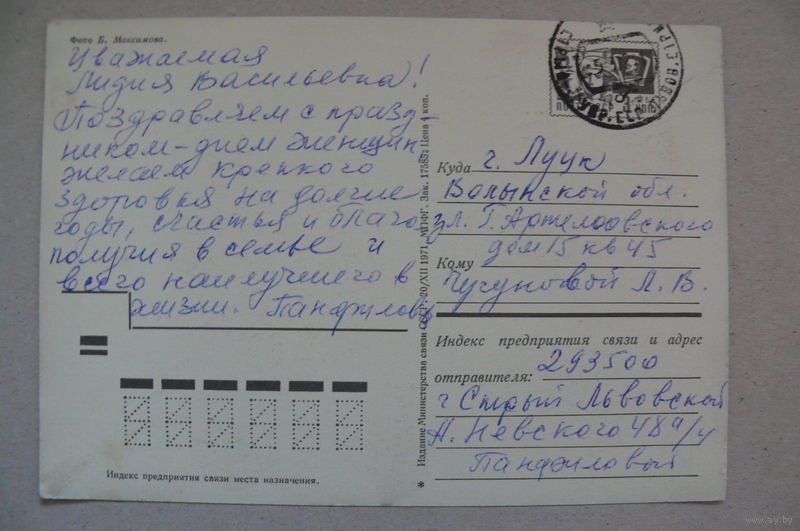 Фото Б. Максимова.
Уважаемая
Лидия Васильевна!
Поздравляем с празд-
ником-днем женщин
желаем крепкого
здоровья на долгие
годы, счастья и благо
получия в семье и
всего наилучшего в
жизни. Панфиловы
Индекс предприятия связи места назначения.
Издание Министерства связи СССР. 20/XII 1971. МПФГ. Зак. 17583. Цена 4 коп.
Куда г. Луцк
Волынской обл.
ул. Г. Артемовского
дом 15 кв 45
Кому
Чугуновой Л. В.
Индекс предприятия связи и адрес
отправителя: 293500
г Стрый Львовской
А. Невского 48а/4
Панфиловой
www.ay.by